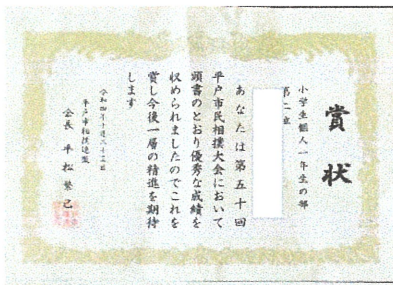 賞状
小学生個人一年生の部
第二位
あなたは第五十回
平戸市民相撲大会において
頭書のとおり優秀な成績を
収められましたのでこれを
賞し今後一層の精進を期待
します
令和四年十月二十三日
平戸市相撲連盟
会長 平松繁己